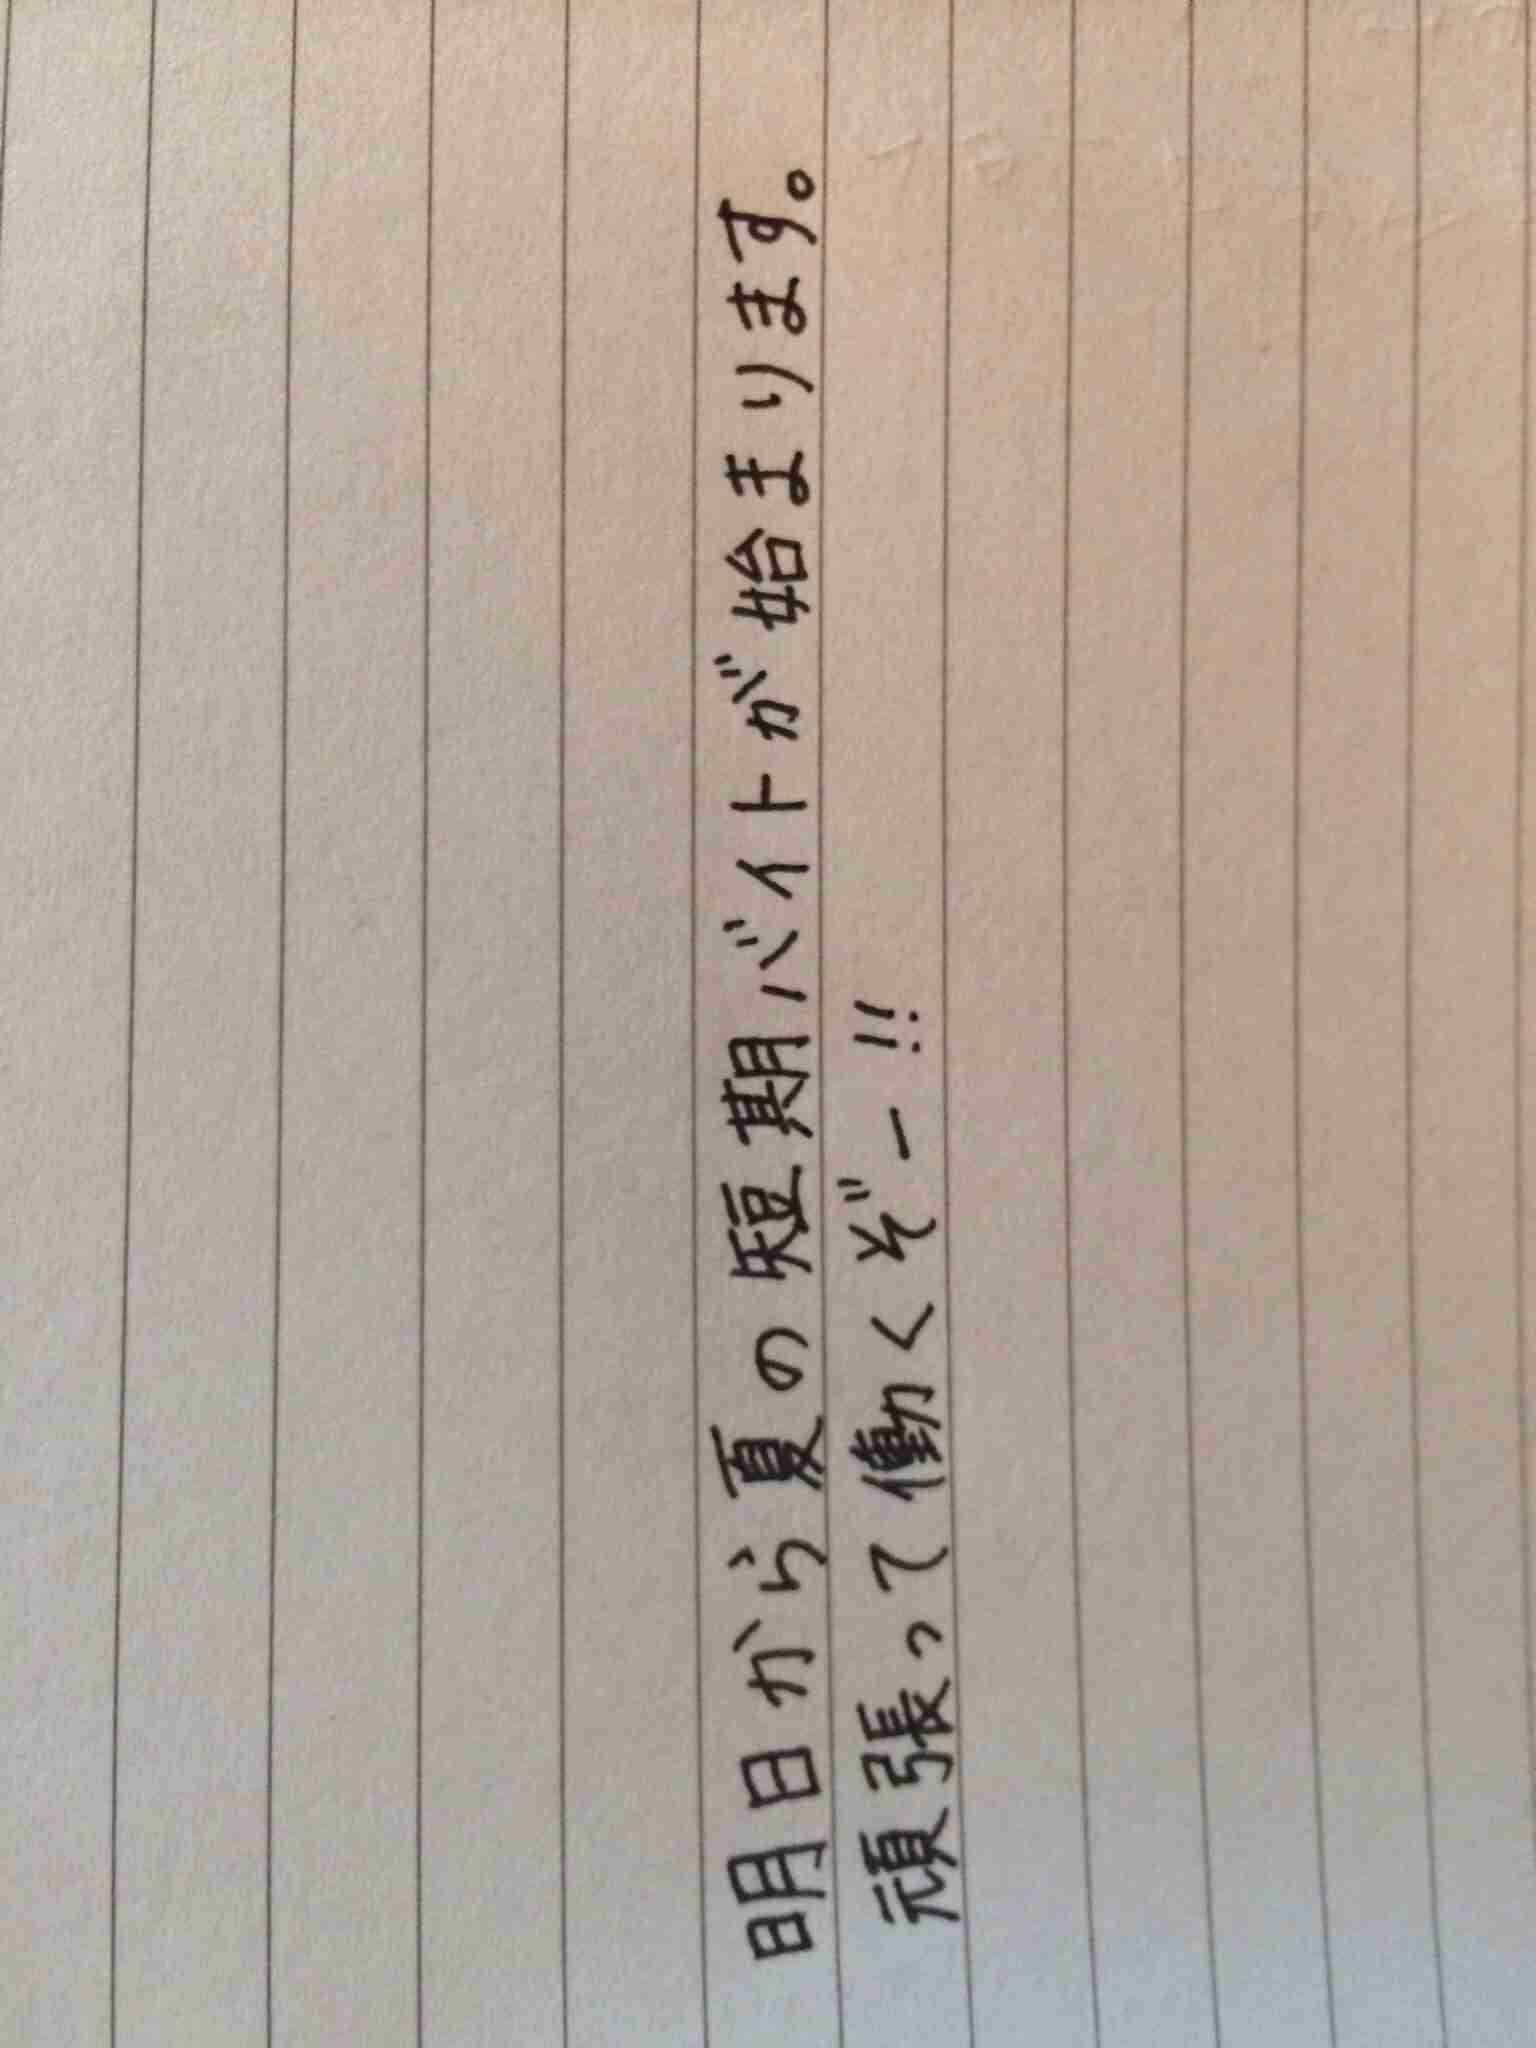 明日から夏の短期バイトが始まります。
頑張って働くぞー!!